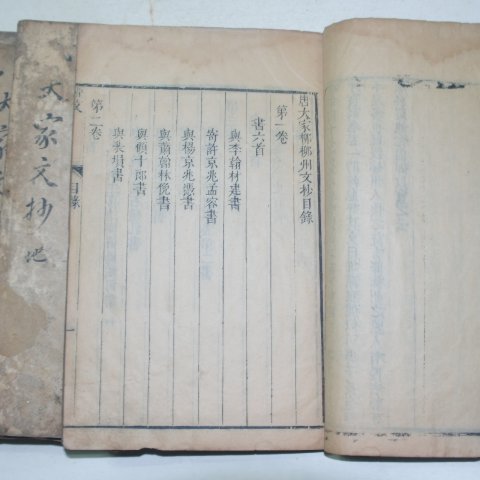 唐大家柳柳州文抄目錄
第一卷
書六首
與李翰林建書
寄許京兆孟容書
與楊京兆憑書
與蕭翰林俛書
與顧十郎書
與裴塤書
第二卷
目錄
大家文抄 地